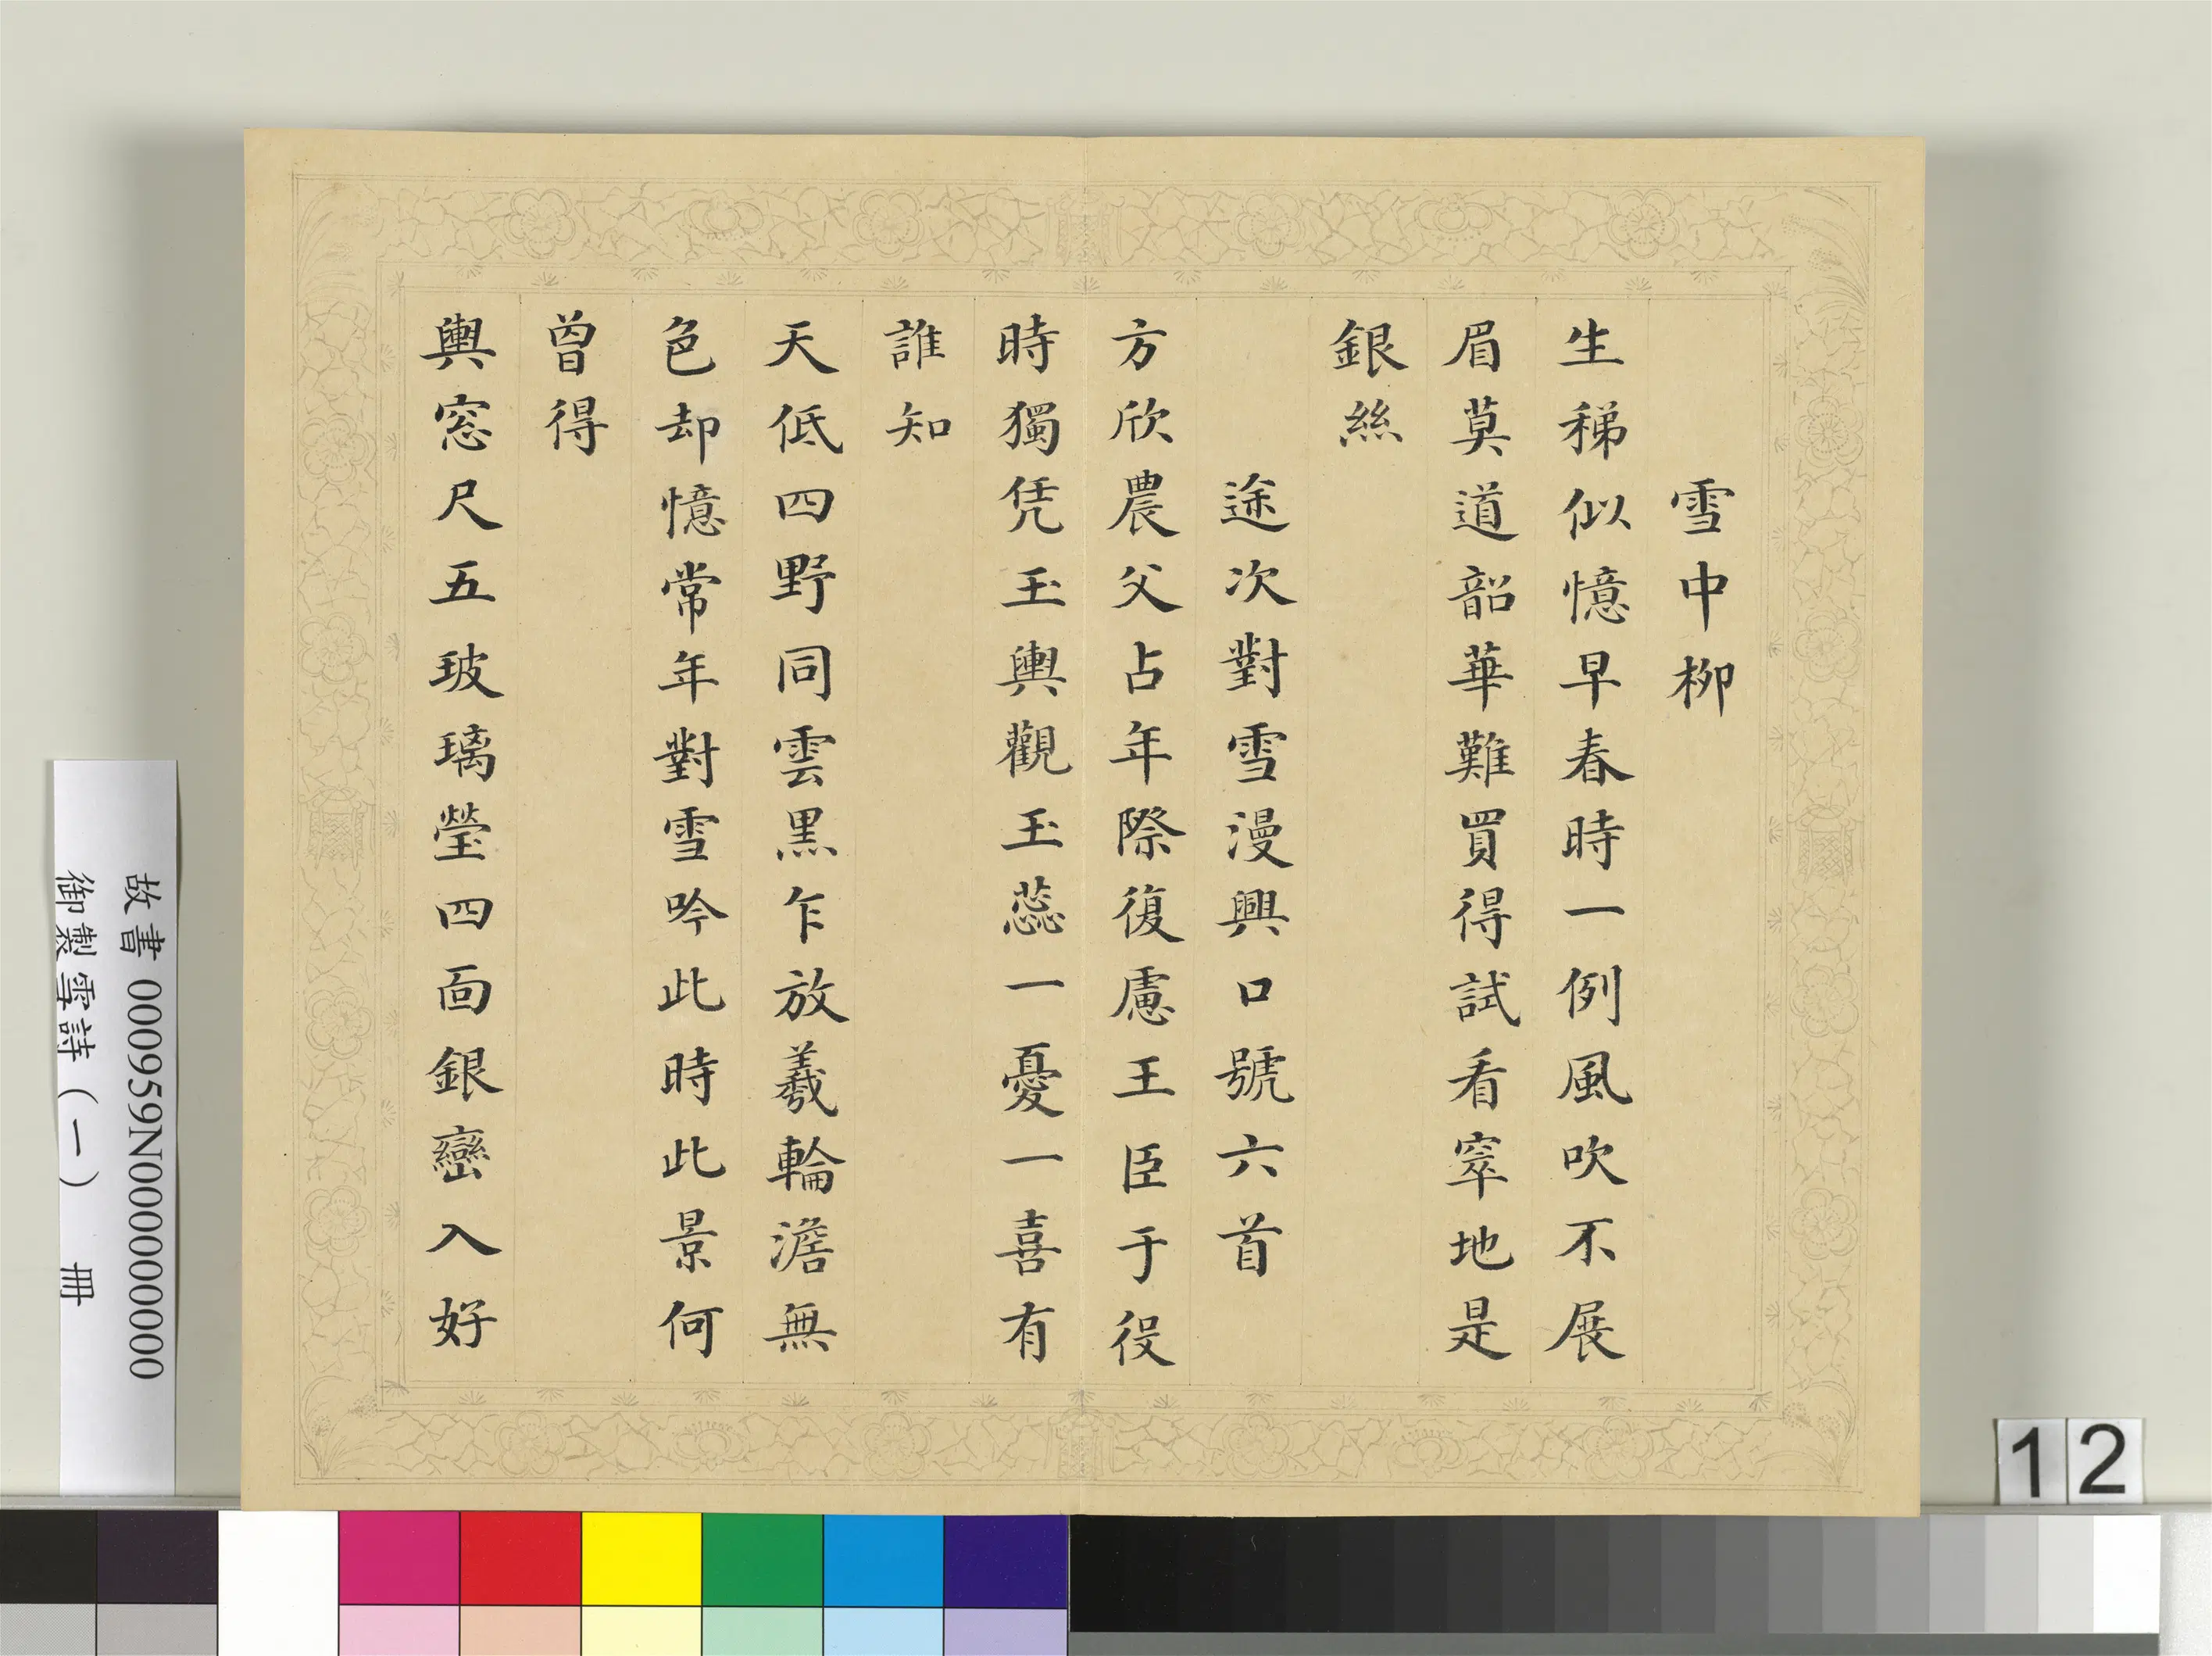 雪中柳
生稊似憶早春時一例風吹不展
眉莫道韶華難買得試看窣地是
銀絲
途次對雪漫興口號六首
方欣農父占年際復慮王臣于役
時獨凭玉輿觀玉蕊一憂一喜有
誰知
天低四野同雲黑乍放羲輪澹無
色却憶常年對雪吟此時此景何
曾得
輿窓尺五玻璃瑩四面銀巒入好
故書 000959N000000000
御製雪詩（一） 冊
12